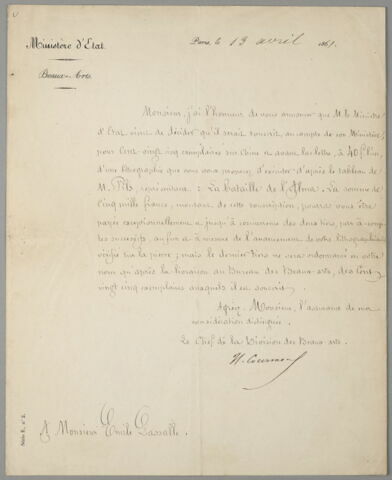 Ministère d'Etat.
Beaux-Arts.
Paris, le 13 avril 1861.
Monsieur, j'ai l'honneur de vous annoncer que M. le Ministre
d'Etat vient de décider qu'il serait souscrit, au compte de son Ministère,
pour Cent vingt cinq exemplaires sur chine et avant la lettre, à 40f. l'un,
d'une lithographie que vous vous proposez d'exécuter d'après le tableau de
M. Pils, représentant : La bataille de l'Alma. La somme de
Cinq mille francs, montant de cette souscription, pourra vous être
payée exceptionnellement et jusqu'à concurrence des deux tiers, par à-comptes
successifs au fur et à mesure de l'avancement de votre lithographie
vérifié sur la pierre ; mais le dernier tiers ne sera ordonnancé en votre
nom qu'après la livraison au Bureau des Beaux-arts, des Cent
vingt cinq exemplaires auxquels il est souscrit.
Agréez, Monsieur, l'assurance de ma
considération distinguée.
Le Chef de la Division des Beaux-arts.
A Monsieur Emile Lassalle.
Série E, n° 2.